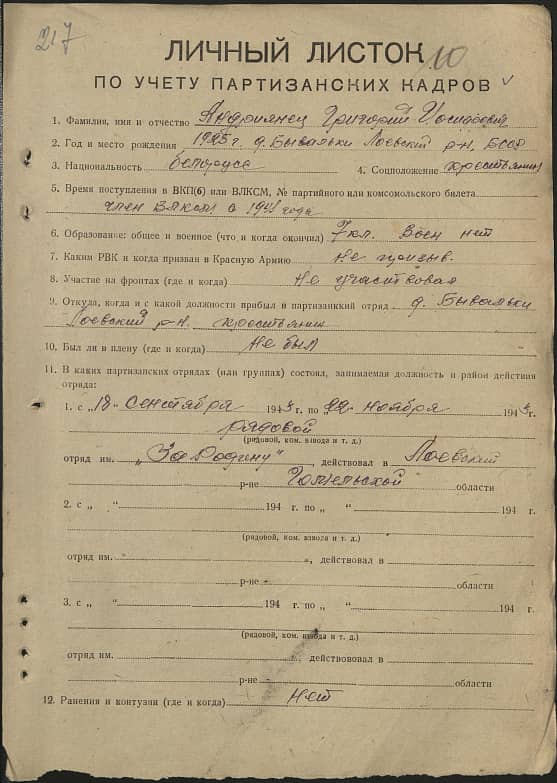 217
ЛИЧНЫЙ ЛИСТОК 10
ПО УЧЕТУ ПАРТИЗАНСКИХ КАДРОВ
1. Фамилия, имя и отчество Андриянец Григорий
2. Год и место рождения 1925 г. д. Бывальки Лоевский р-н. БССР
3. Национальность белорусс 4. Соцположение крестьянин
5. Время поступления в ВКП(б) или ВЛКСМ, № партийного или комсомольского билета
член ВЛКСМ с 1941 года
6. Образование: общее и военное (что и когда окончил) 7 кл. Воен нет
7. Каким РВК и когда призван в Красную Армию Не призыв.
8. Участие на фронтах (где и когда) Не участвовал
9. Откуда, когда и с какой должности прибыл в партизанский отряд д. Бывальки
Лоевский р-н. крестьянин
10. Был ли в плену (где и когда) Не был
11. В каких партизанских отрядах (или группах) состоял, занимаемая должность и район действия
отряда:
1. с „18" Сентября 1943 г. по „22" ноября 1943 г.
рядовой
(рядовой, ком. взвода и т. д.)
отряд им. „За Родину", действовал в Лоевский
р-не Гомельской области
2. с „ " 194 г. по „ " 194 г.
(рядовой, ком. взвода и т. д.)
отряд им. „, действовал в
р-не области
3. с „ " 194 г. по „ " 194 г.
(рядовой, ком. взвода и т. д.)
отряд им. , действововал в
р-не области
12. Ранения и контузии (где и когда) Нет